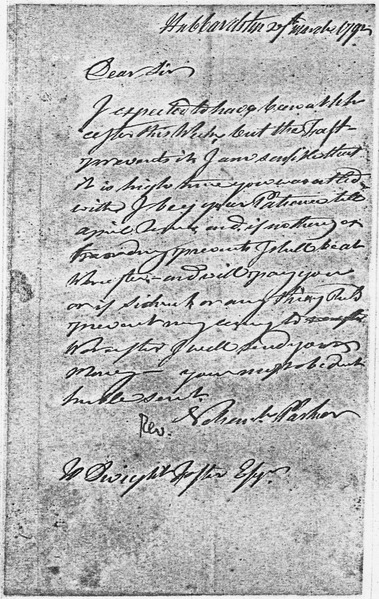 Hubbardston 27th March 1792
Dear Sir
I expected to have been at
this Week, but the
prevents it, I am sensible that
it is high time you was
with I beg your Patience till
april Court and if nothing
prevents I shall be at
Worcester and will pay you
or if sickness or any thing
prevent my coming to
Worcester I will send your
Money— your most obedient
humble servt.
Nehemh. Parker
Rev.
To Dwight Foster Esqr.